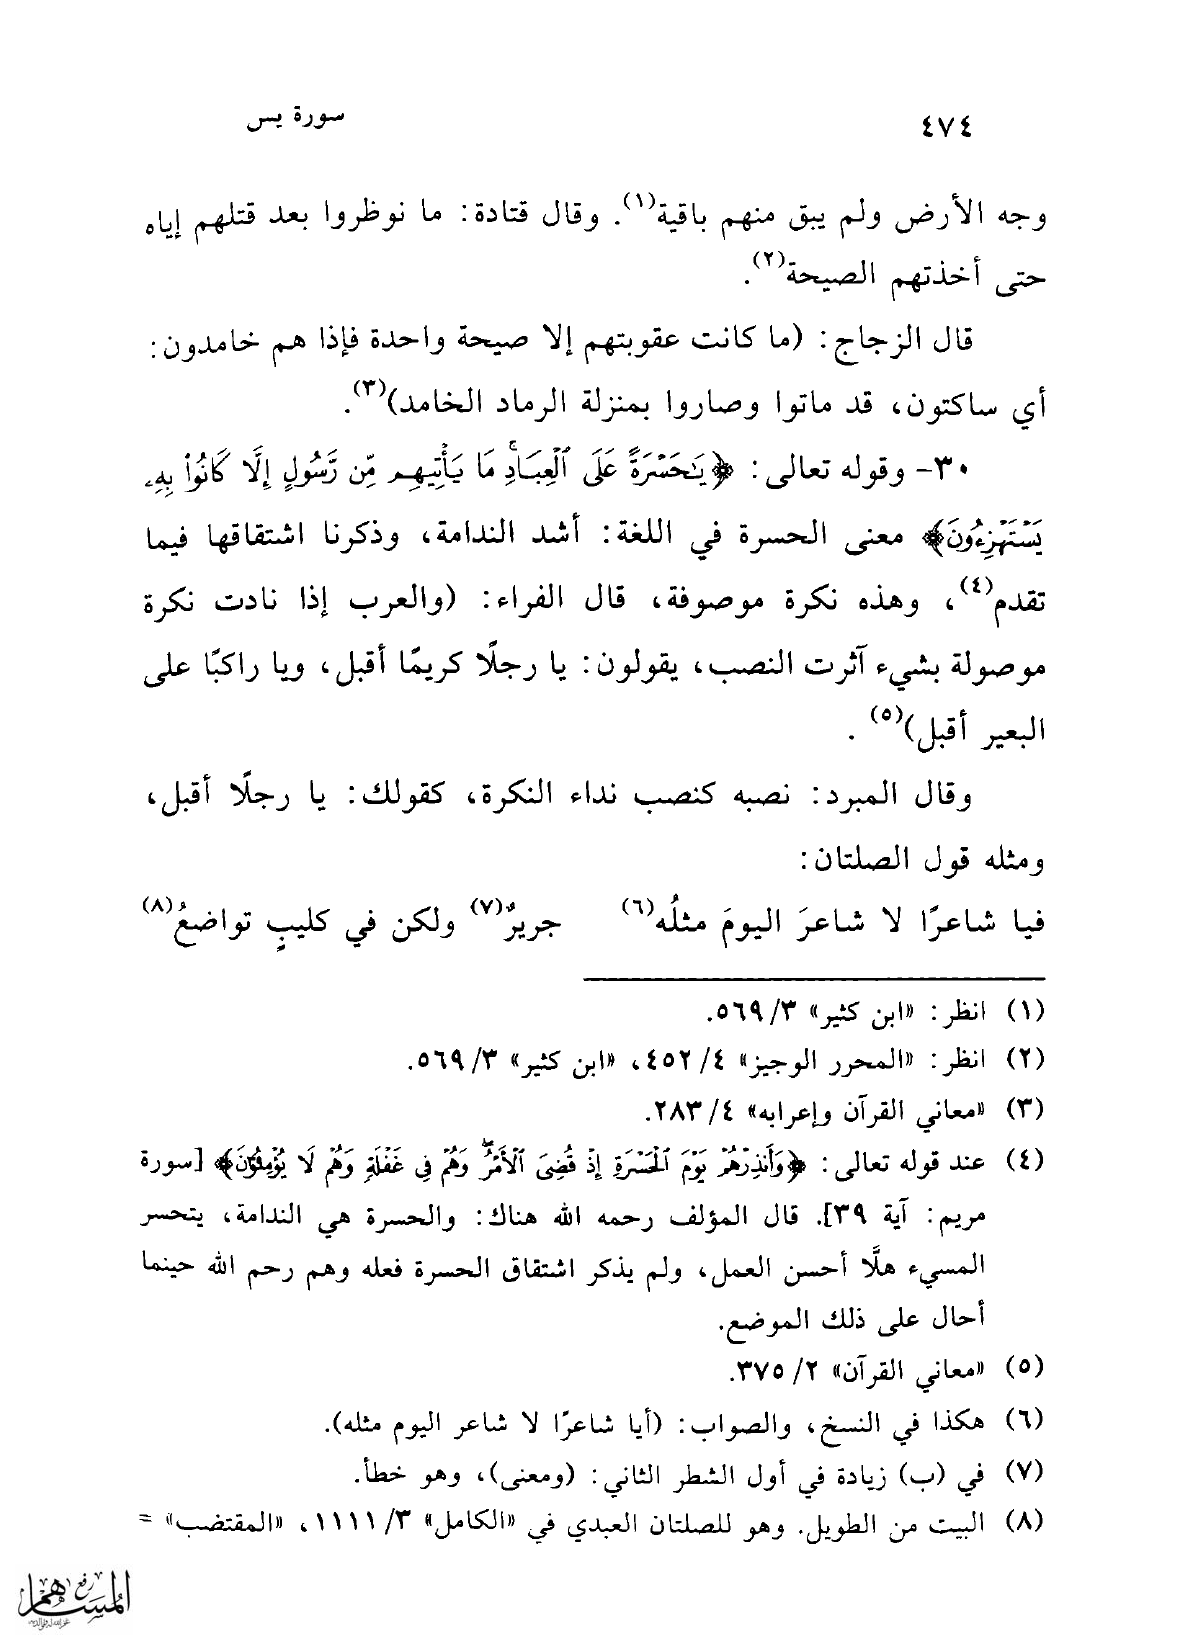 ٤٧٤
سورة يس
وجه الأرض ولم يبق منهم باقية(١). وقال قتادة: ما نوظروا بعد قتلهم إياه
حتى أخذتهم الصيحة(٢).
قال الزجاج: (ما كانت عقوبتهم إلا صيحة واحدة فإذا هم خامدون:
أي ساكتون، قد ماتوا وصاروا بمنزلة الرماد الخامد)(٣).
٣٠- وقوله تعالى: ﴿يَٰحَسْرَةً عَلَى ٱلْعِبَادِۚ مَا يَأْتِيهِم مِّن رَّسُولٍ إِلَّا كَانُوا۟ بِهِۦ
يَسْتَهْزِءُونَ﴾ معنى الحسرة في اللغة: أشد الندامة، وذكرنا اشتقاقها فيما
تقدم(٤)، وهذه نكرة موصوفة، قال الفراء: (والعرب إذا نادت نكرة
موصولة بشيء آثرت النصب، يقولون: يا رجلًا كريمًا أقبل، ويا راكبًا على
البعير أقبل)(٥).
وقال المبرد: نصبه كنصب نداء النكرة، كقولك: يا رجلًا أقبل،
ومثله قول الصلتان:
فيا شاعرًا لا شاعرَ اليومَ مثلُه(٦) جريرٌ(٧) ولكن في كليبٍ تواضعُ(٨)
(١) انظر: «ابن كثير» ٣/ ٥٦٩.
(٢) انظر: «المحرر الوجيز» ٤/ ٤٥٢، «ابن كثير» ٣/ ٥٦٩.
(٣) «معاني القرآن وإعرابه» ٤/ ٢٨٣.
(٤) عند قوله تعالى: ﴿وَأَنذِرْهُمْ يَوْمَ ٱلْحَسْرَةِ إِذْ قُضِىَ ٱلْأَمْرُ وَهُمْ فِى غَفْلَةٍ وَهُمْ لَا يُؤْمِنُونَ﴾ [سورة
مريم: آية ٣٩]. قال المؤلف رحمه الله هناك: والحسرة هي الندامة، يتحسر
المسيء هلَّا أحسن العمل، ولم يذكر اشتقاق الحسرة فعله وهم رحم الله حينما
أحال على ذلك الموضع.
(٥) «معاني القرآن» ٢/ ٣٧٥.
(٦) هكذا في النسخ، والصواب: (أيا شاعرًا لا شاعر اليوم مثله).
(٧) في (ب) زيادة في أول الشطر الثاني: (ومعنى)، وهو خطأ.
(٨) البيت من الطويل. وهو للصلتان العبدي في «الكامل» ٣/ ١١١١، «المقتضب» =